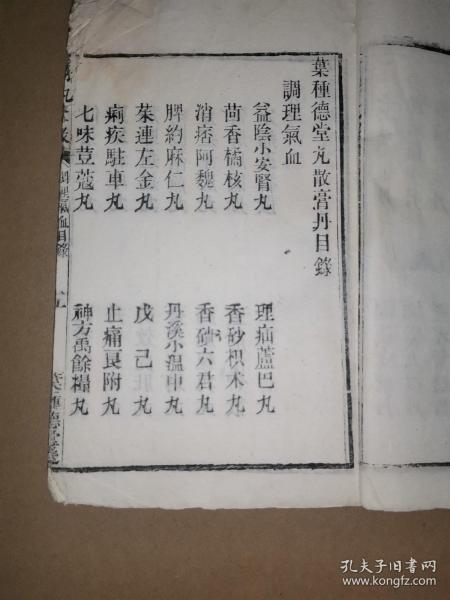 葉種德堂丸散膏丹目錄
調理氣血
益陰小安腎丸
理疝蘆巴丸
茴香橘核丸
香砂枳朮丸
消痞阿魏丸
香砂六君丸
脾約麻仁丸
丹溪小溫中丸
茱連左金丸
戊己丸
痢疾駐車丸
止痛良附丸
七味荳蔻丸
神方禹餘糧丸
調理氣血目錄
孔夫子旧书网
www.kongfz.com